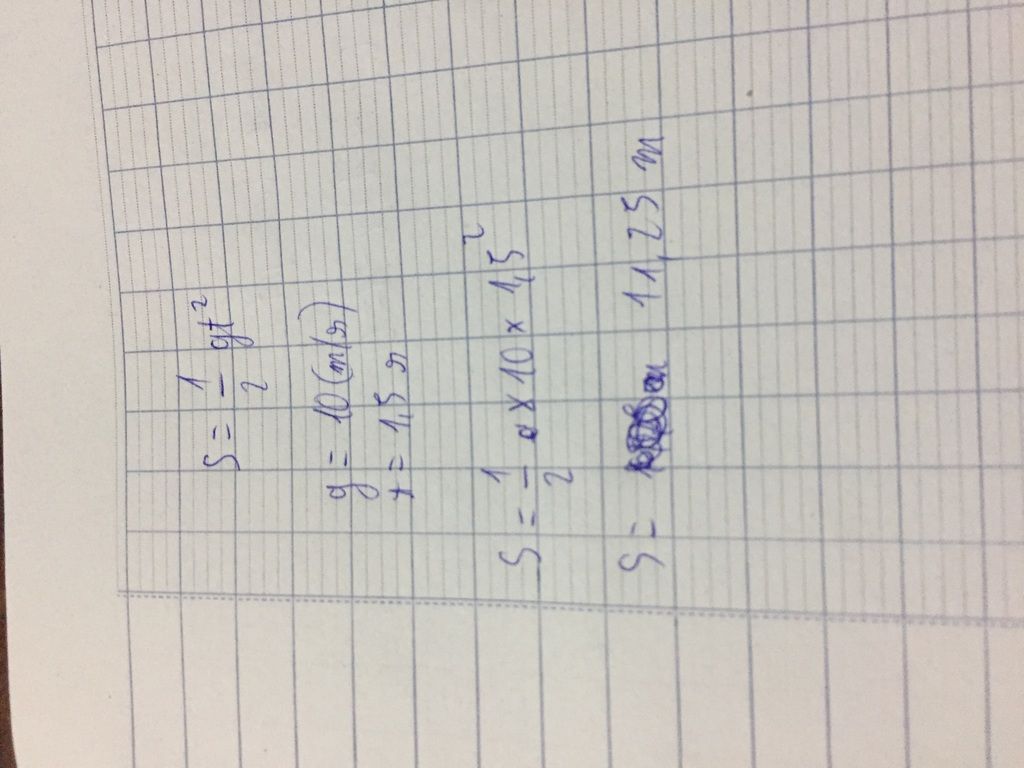 S = 1/2 gt²
g = 10 (m/s)
t = 1,5 s
S = 1/2 x 10 x 1,5²
S = 11,25 m